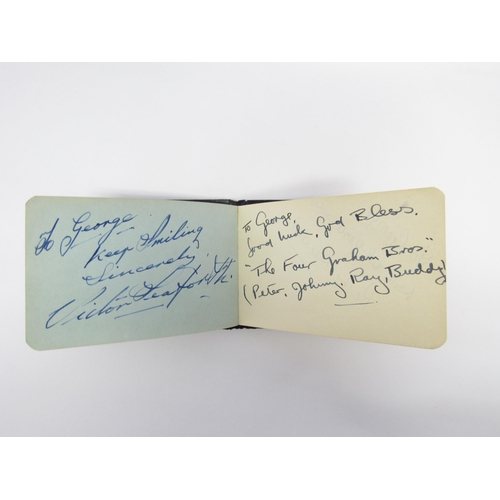 To George
Keep Smiling
Sincerely
Victor Seaforth.
To George,
Good luck, God Bless.
"The Four Graham Bros."
(Peter, Johnny, Ray, Buddy)